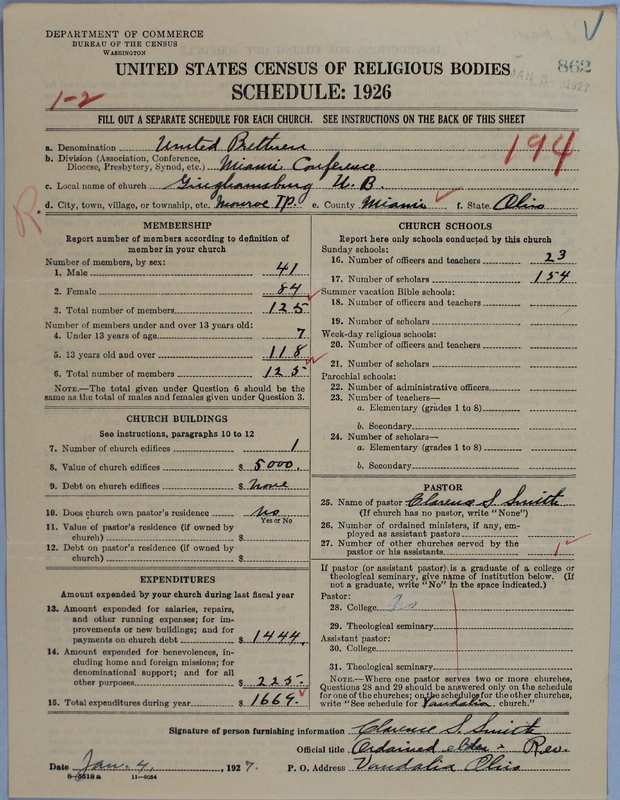 DEPARTMENT OF COMMERCE
BUREAU OF THE CENSUS
WASHINGTON
UNITED STATES CENSUS OF RELIGIOUS BODIES
SCHEDULE: 1926
862
JAN 5 1927
1-2
FILL OUT A SEPARATE SCHEDULE FOR EACH CHURCH. SEE INSTRUCTIONS ON THE BACK OF THIS SHEET
194
a. Denomination United Brethren
b. Division (Association, Conference, Diocese, Presbytery, Synod, etc.) Miami Conference
c. Local name of church Ginghamsburg U. B.
d. City, town, village, or township, etc. Monroe TP. e. County Miami f. State Ohio
R
MEMBERSHIP
Report number of members according to definition of member in your church
Number of members, by sex:
1. Male 41
2. Female 84
3. Total number of members 125
Number of members under and over 13 years old:
4. Under 13 years of age 7
5. 13 years old and over 118
6. Total number of members 125
NOTE.—The total given under Question 6 should be the same as the total of males and females given under Question 3.
CHURCH BUILDINGS
See instructions, paragraphs 10 to 12
7. Number of church edifices 1
8. Value of church edifices $ 5000.
9. Debt on church edifices $ None
10. Does church own pastor's residence No
Yes or No
11. Value of pastor's residence (if owned by church) $
12. Debt on pastor's residence (if owned by church) $
EXPENDITURES
Amount expended by your church during last fiscal year
13. Amount expended for salaries, repairs, and other running expenses; for improvements or new buildings; and for payments on church debt $ 1444.
14. Amount expended for benevolences, including home and foreign missions; for denominational support; and for all other purposes $ 225.
15. Total expenditures during year $ 1669.
CHURCH SCHOOLS
Report here only schools conducted by this church
Sunday schools:
16. Number of officers and teachers 23
17. Number of scholars 154
Summer vacation Bible schools:
18. Number of officers and teachers
19. Number of scholars
Week-day religious schools:
20. Number of officers and teachers
21. Number of scholars
Parochial schools:
22. Number of administrative officers
23. Number of teachers—
a. Elementary (grades 1 to 8)
b. Secondary
24. Number of scholars—
a. Elementary (grades 1 to 8)
b. Secondary
PASTOR
25. Name of pastor Clarence S. Smith
(If church has no pastor, write "None")
26. Number of ordained ministers, if any, employed as assistant pastors
27. Number of other churches served by the pastor or his assistants 1
If pastor (or assistant pastor) is a graduate of a college or theological seminary, give name of institution below. (If not a graduate, write "No" in the space indicated.)
Pastor:
28. College No
29. Theological seminary
Assistant pastor:
30. College
31. Theological seminary
NOTE.—Where one pastor serves two or more churches, Questions 28 and 29 should be answered only on the schedule for one of the churches; on the schedules for the other churches, write "See schedule for Vandalia church."
Signature of person furnishing information Clarence S. Smith
Official title Ordained elder - Rev.
Date Jan. 4, 1927. P. O. Address Vandalia Ohio
8-5518a 11-9054